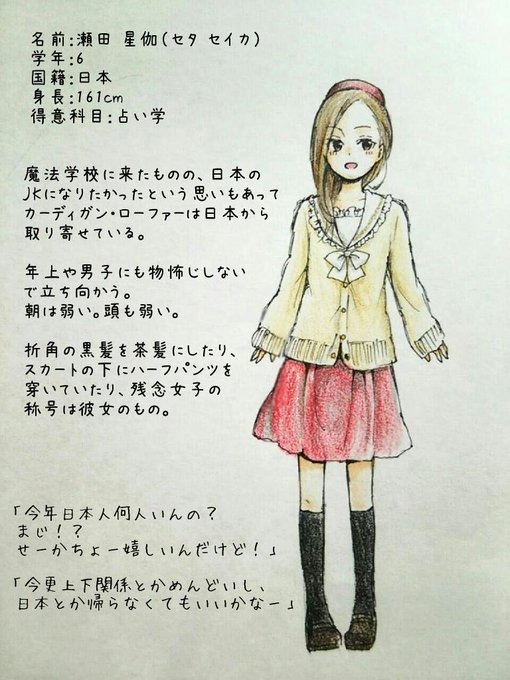 名前:瀬田 星伽(セタ セイカ)
学年:6
国籍:日本
身長:161cm
得意科目:占い学
魔法学校に来たものの、日本の
JKになりたかったという思いもあって
カーディガン・ローファーは日本から
取り寄せている。
年上や男子にも物怖じしない
で立ち向かう。
朝は弱い。頭も弱い。
折角の黒髪を茶髪にしたり、
スカートの下にハーフパンツを
穿いていたり、残念女子の
称号は彼女のもの。
「今年日本人何人いんの?
まじ!?
せーかちょー嬉しいんだけど!」
「今更上下関係とかめんどいし、
日本とか帰らなくてもいいかなー」